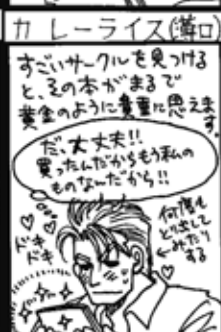 カレーライス(溝口)
すごいサークルを見つける
と、その本がまるで
黄金のように貴重に思えます
だ、大丈夫!!
買ったんだからもう私の
ものなんだから!!
ドキ
ドキ
何度も
とり出して
みたり
する